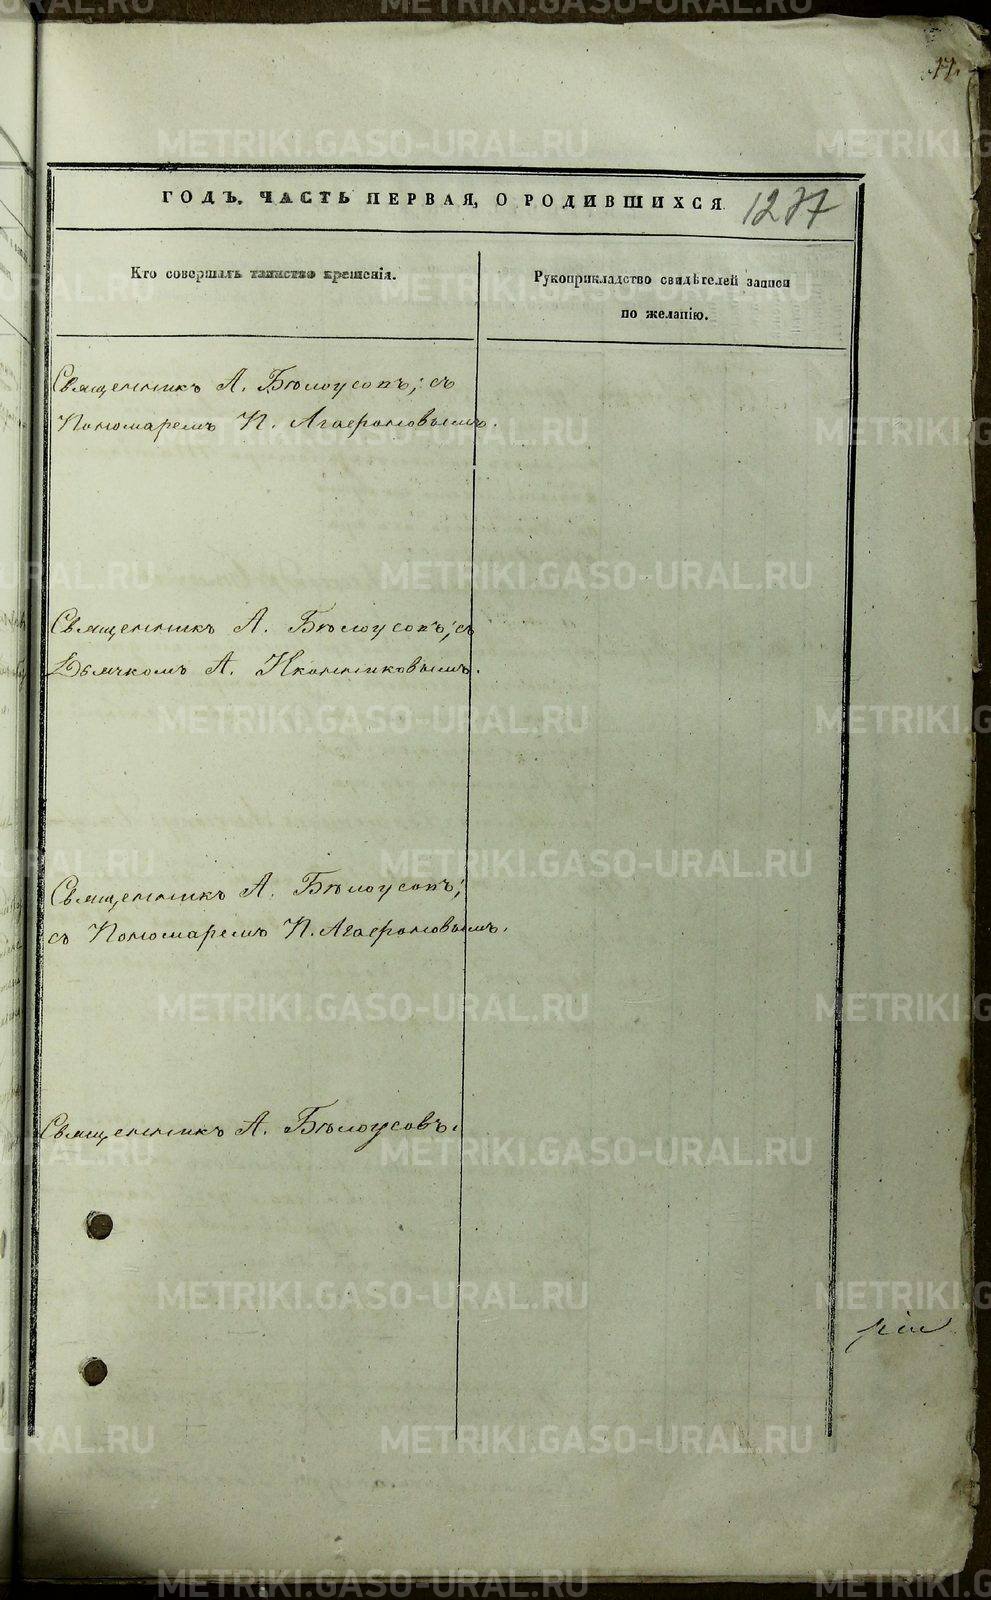 17.
ГОДЪ. ЧАСТЬ ПЕРВАЯ, О РОДИВШИХСЯ
1277
Кто совершалъ таинство крещенія.
Рукоприкладство свидѣтелей записи
по желанію.
Священникъ А. Бѣлоусовъ; съ
Пономаремъ П. Агафоновымъ.
Священникъ А. Бѣлоусовъ; съ
Дьячкомъ А. Иконниковымъ.
Священникъ А. Бѣлоусовъ;
съ Пономаремъ П. Агафоновымъ.
Священникъ А. Бѣлоусовъ.
METRIKI.GASO-URAL.RU